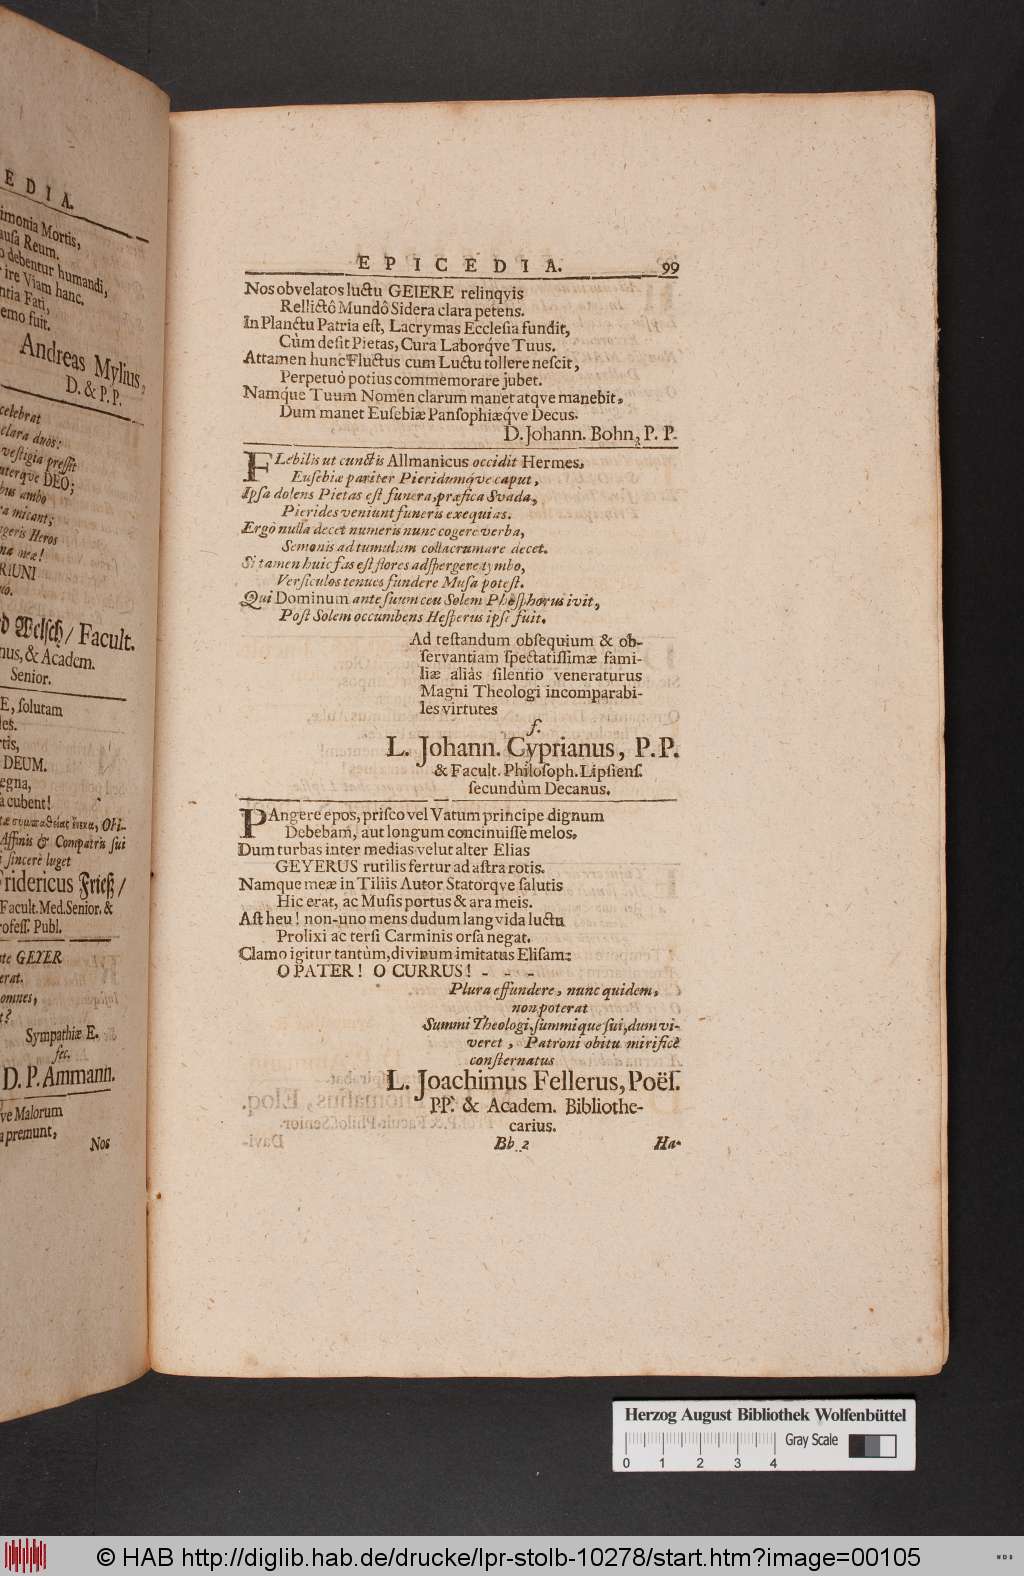 EDIA.
imonia Mortis,
ausa Reum.
debentur humandi,
ire Viam hanc.
ntia Fati,
emo fuit.
Andreas Mylius,
D. & P. P.
celebrat
clara duos:
vestigia pressit
uterqve DEO;
bus ambo
ra micant;
ngeris Heros
næ meæ!
RIUNI
Welsch / Facult.
nus, & Academ.
Senior.
E, solutam
les.
rtis,
DEUM.
egna,
a cubent!
συμπαθείας ἕνεκα, Obi-
Affinis & Compatris sui
sincerè luget
Fridericus Frieß /
Facult. Med. Senior. &
rofess. Publ.
te GEYER
erat.
omnes,
t?
Sympathiæ E.
fec.
D. P. Ammann.
ve Malorum
a premunt,
Nos
EPICEDIA. 99
Nos obvelatos luctu GEIERE relinqvis
Rellictô Mundô Sidera clara petens.
In Planctu Patria est, Lacrymas Ecclesia fundit,
Cùm desit Pietas, Cura Laborqve Tuus.
Attamen hunc Fluctus cum Luctu tollere nescit,
Perpetuò potius commemorare jubet.
Namqúe Tuum Nomen clarum manet atqve manebit,
Dum manet Eusebiæ Pansophiæqve Decus.
D. Johann. Bohn, P. P.
FLebilis ut cunctis Allmanicus occidit Hermes,
Eusebiæ pariter Pieridumqve caput,
Ipsa dolens Pietas est funera, præfica Svada,
Pierides veniunt funeris exequias.
Ergò nulla decet numeris nunc cogere verba,
Semonis ad tumulum collacrumare decet.
Si tamen huic fas est flores adspergere tymbo,
Versiculos tenues fundere Musa potest.
Qui Dominum ante suum ceu Solem Phosphorus ivit,
Post Solem occumbens Hesperus ipse fuit.
Ad testandum obsequium & ob-
servantiam spectatissimæ fami-
liæ aliàs silentio veneraturus
Magni Theologi incomparabi-
les virtutes
f.
L. Johann. Cyprianus, P. P.
& Facult. Philosoph. Lipsiens.
secundùm Decanus.
PAngere epos, prisco vel Vatum principe dignum
Debebam, aut longum concinuisse melos,
Dum turbas inter medias velut alter Elias
GEYERUS rutilis fertur ad astra rotis.
Namque meæ in Tiliis Autor Statorqve salutis
Hic erat, ac Musis portus & ara meis.
Ast heu! non-uno mens dudum langvida luctu
Prolixi ac tersi Carminis orsa negat.
Clamo igitur tantùm, divinum imitatus Elisam:
O PATER! O CURRUS! - - -
Plura effundere, nunc quidem,
non poterat
Summi Theologi, summique sui, dum vi-
veret, Patroni obitu mirificè
consternatus
L. Joachimus Fellerus, Poës.
P.P. & Academ. Bibliothe-
carius.
Bb 2 Ha-
Herzog August Bibliothek Wolfenbüttel
Gray Scale
0 1 2 3 4
© HAB http://diglib.hab.de/drucke/lpr-stolb-10278/start.htm?image=00105